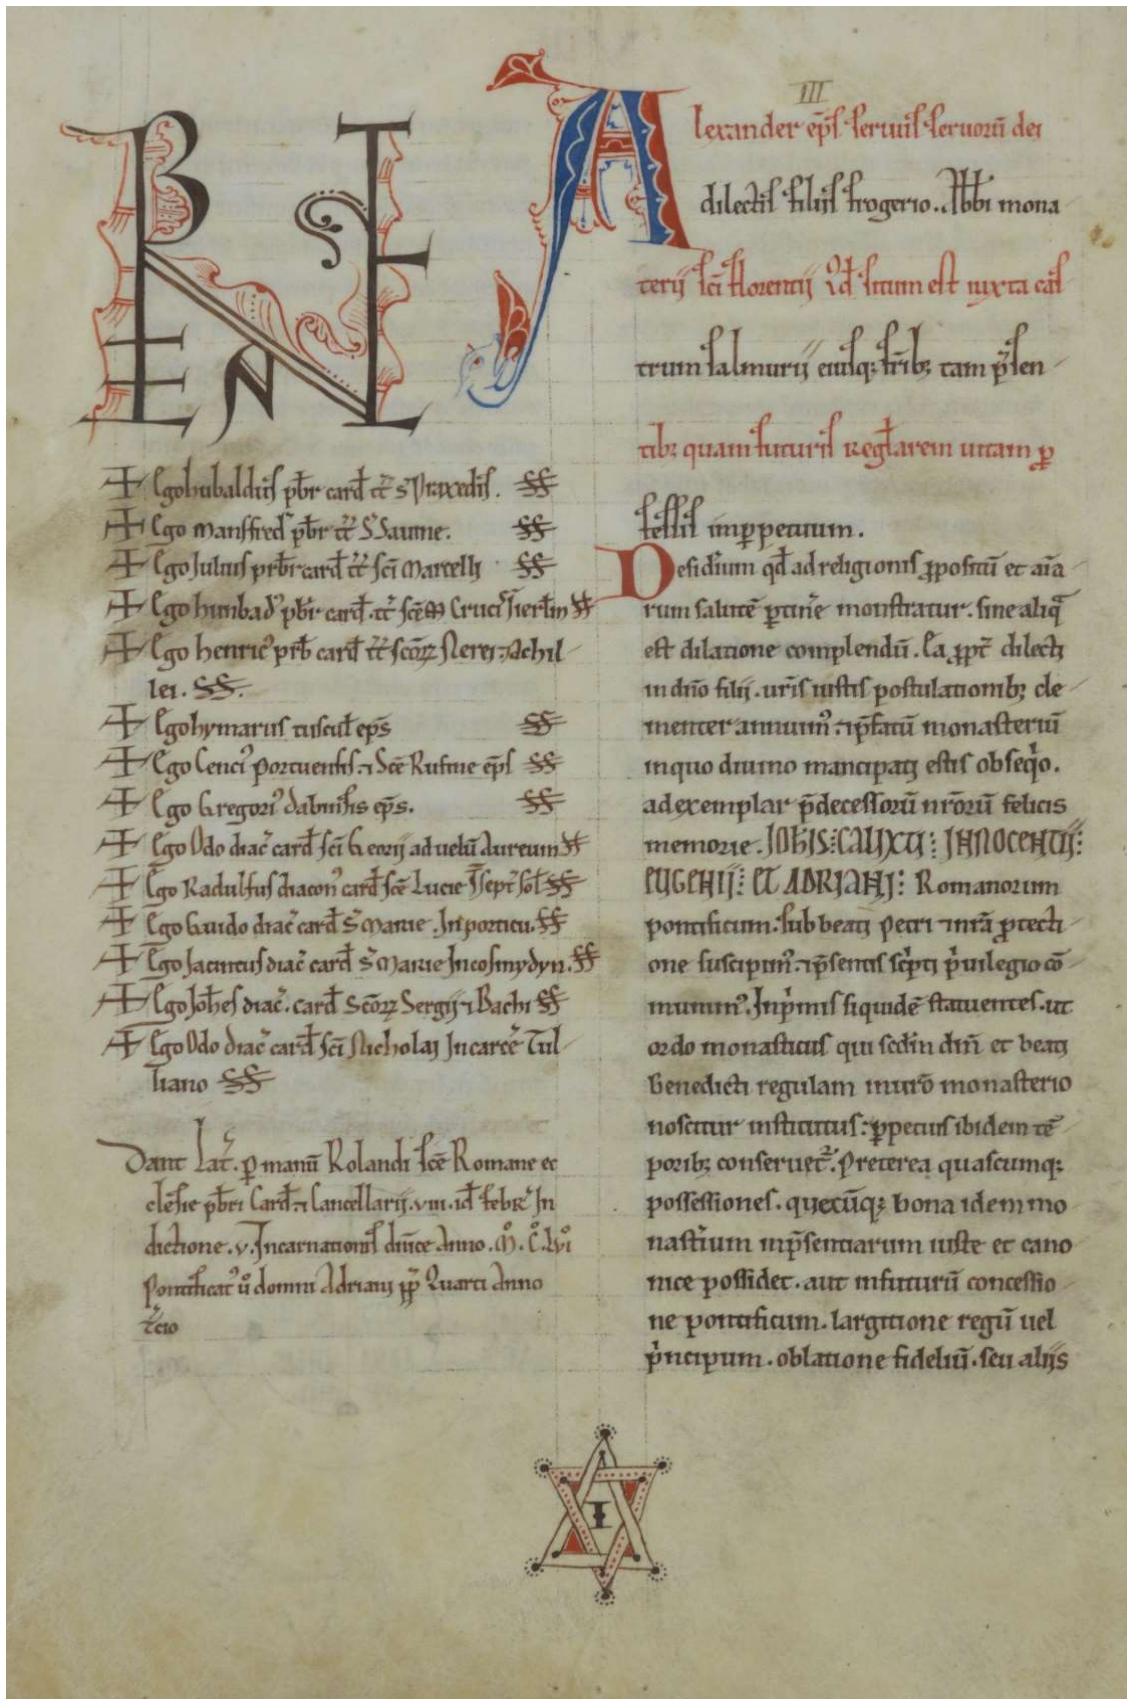 BENE
+ Ego hubaldus pb̄r card̄ tt̄ s̄ Praxedis. SS
+ Ego Manfred᾽ pb̄r tt̄ S̄ Sauine. SS
+ Ego Iulius prb̄r card̄ tt̄ sc̄i Marcelli SS
+ Ego hunbad᾽ pb̄r card̄. tt̄ sc̄e Cruci᾽ Ierl̄m SS
+ Ego henric᾽ prb̄ card̄ tt̄ sc̄oꝝ Nerei ⁊ Achil
lei. SS.
+ Ego hymarus tuscul̄ ep̄s SS
+ Ego Cenci᾽ Portuensis ⁊ Sc̄e Rufine ep̄s SS
+ Ego Gregori᾽ Sabinēsis ep̄s. SS
+ Ego Odo diac̄ card̄ sc̄i Georij ad uelū Aureum SS
+ Ego Radulfus diacon᾽ card̄ sc̄e Lucie ī sept̄ sol̄ SS
+ Ego Guido diac̄ card̄ s̄ Marie. In porticu. SS
+ Ego Iacintus diac̄ card̄ s̄ Marie Incosmydyn. SS
+ Ego Joh̄es diac̄. card̄ Sc̄oꝝ Sergij ⁊ Bachi SS
+ Ego Odo diac̄ card̄ sc̄i Nicholaj Incarcē Tul
liano SS
Dant̄ Lat̄. ꝑ manū Rolandi sc̄e Romane ec
clēsie pb̄ri Card̄ ⁊ Cancellarij. viii. id̄ febr̄ In
dictione. v. Incarnationis dn̄ice Anno. M̊. C̊. Lvi̊
Pontificat᾽ ů domni Adriani pp̄ Quarti Anno
t̄cio
III
Alexander ep̄s. seruus seruorū dei
dilectis filiis frogerio. Abb̄i mona
terij sc̄i florentij qd̄ situm est iuxta cas
trum salmurij eiusqꝫ fr̄ibꝫ tam p̄sen
tibꝫ quam futuris regl̄arem uitam ꝓ
fessis imꝑpetuum.
Desid̄ium qd̄ ad religionis ꝓpositū et aīa
rum salutē ꝑtin̄e monstratur. sine aliq̄
est dilatione complendū. Ea ꝓpt̄ dilecti
in dn̄o filij. ur̄is iustis postulationibꝫ cle
menter annuim᾽. ⁊ p̄fatū monasteriū
inquo diuino mancipati estis obseqͥo.
ad exemplar p̄decessorū nr̄orū felicis
memorie. IOH̄IS: CALIXTI: INNOCENTII:
EUGENII: ET ADRIANI: Romanorum
pontificum. sub beati Petri ⁊ nr̄a ꝓtecti
one suscipim᾽. ⁊ p̄sentis scͥpti pͥuilegio cō
munim᾽. Inpͥmis siquidē statuentes. ut
ordo monasticus qui sed̄m dn̄i et beati
Benedicti regulam in ur̄o monasterio
noscitur institutus. ꝑpetuis ibidem tē
poribꝫ conseruet᾽. Preterea quascumqꝫ
possessiones. quecūqꝫ bona idem mo
nast̄ium inp̄sentiarum iuste et cano
nice possidet. aut infuturū concessio
ne pontificum. largitione regū uel
pͥncipum. oblatione fideliū. seu aliis
I